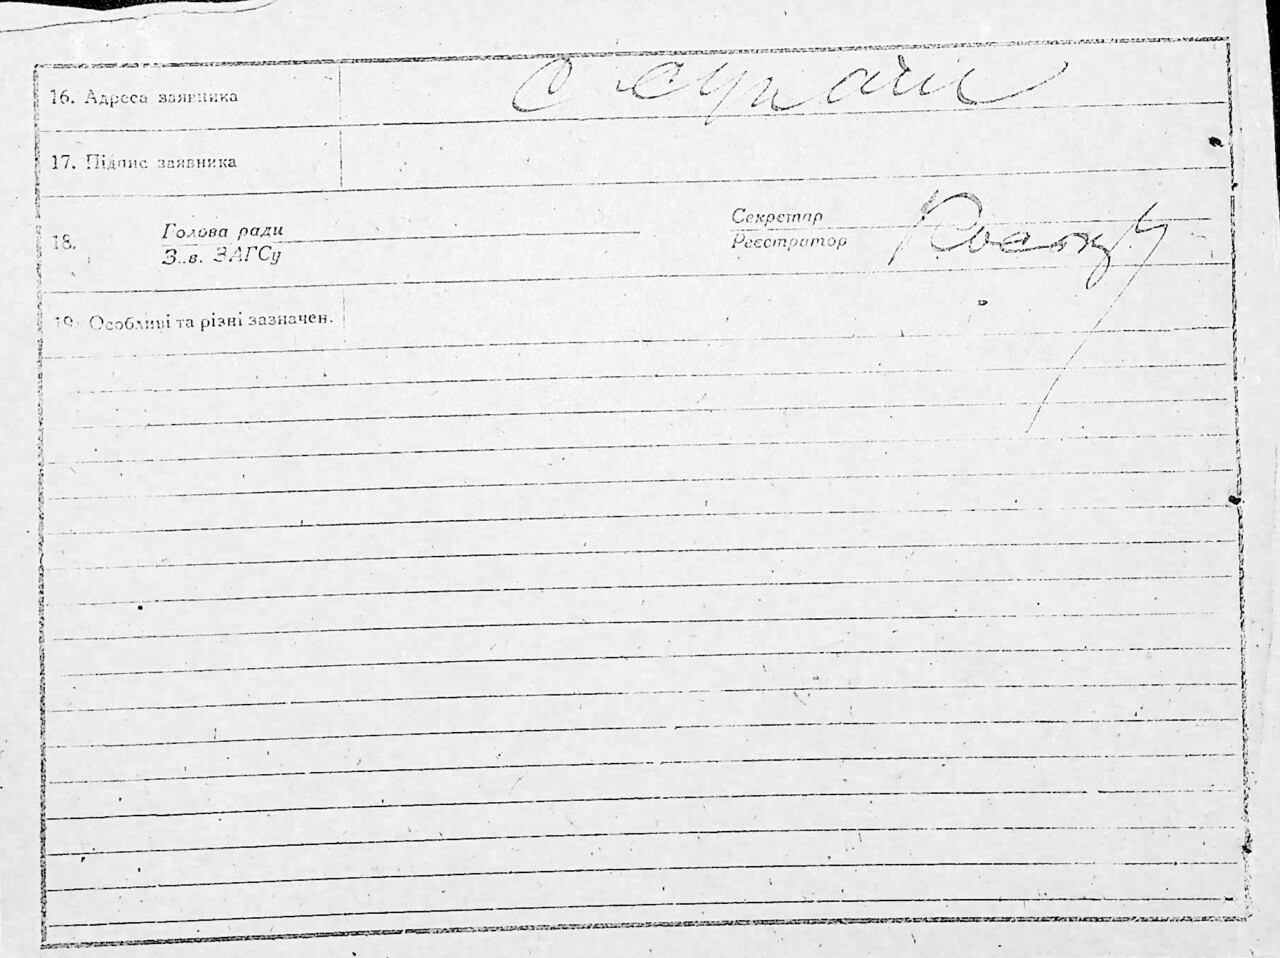 16. Адреса заявника
17. Підпис заявника
18. Голова ради
З..в. ЗАГСу
Секретар
Реєстратор
19. Особливі та різні зазначен.